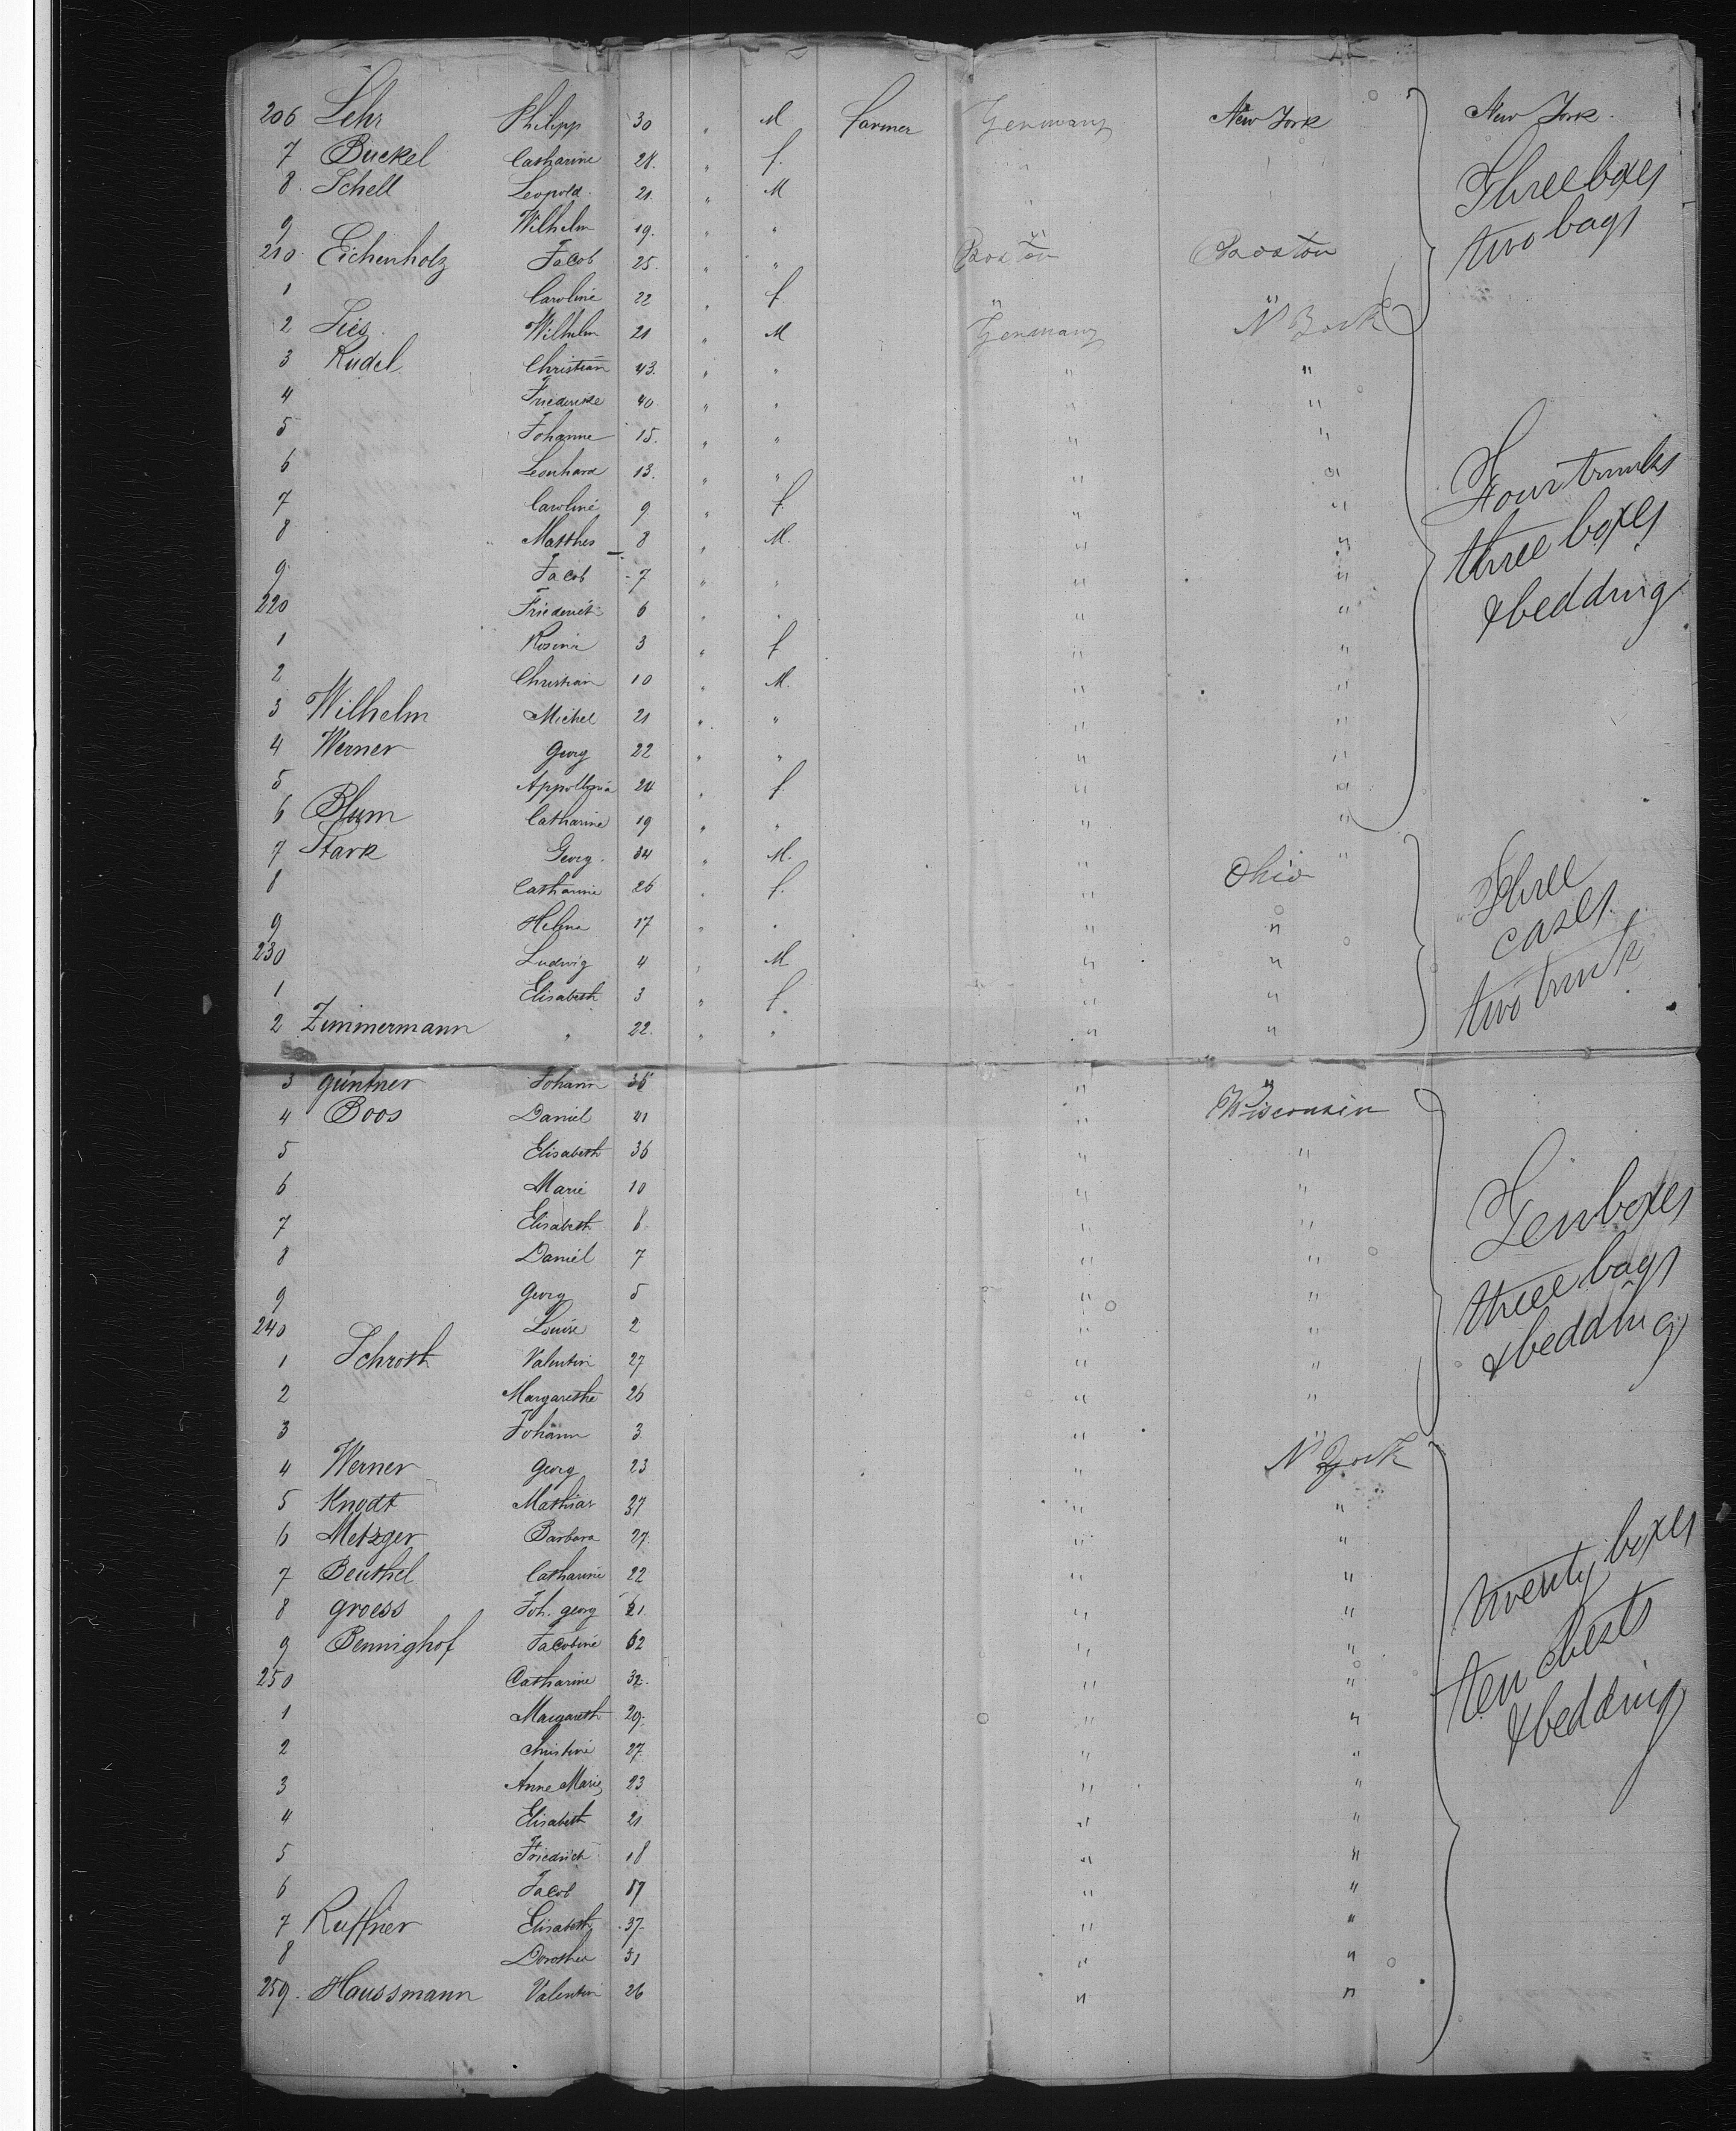 206 Lehr Philipp 30 " M farmer Germany New York New York.
7 Buckel Catharine 28. " f. " "
8 Schell Leopold. 21 " M " "
Three boxes
9 Wilhelm 19. " " "
two bags
210 Eichenholz Jacob 25. " " Boston Boston
1 Caroline 22 " f. " "
2 Lies. Wilhelm 21 " M Germany N York
3 Rudel Christian 43. " " " "
4 Friedericke 40. " " " "
5 Johanne 15. " " " "
6 Leonhard 13. " " " "
Four trunks
7 Caroline 9 " f " "
8 Matthes 8 " M. " "
three boxes
9. Jacob 7 " " " "
220 Friederich 6 " " " "
& bedding
1 Rosina 3 " f " "
2 Christian 10 " M. " "
3 Wilhelm Michel 21 " " " "
4 Werner Georg 22 " " " "
5 Appollonia 24 " f " "
6 Blum Catharine 19 " " " "
7 Stark Georg. 34 " M. " "
8 Catharine 26 " f. " Ohio
Three
9 Helena 17 " " " "
cases
230 Ludwig 4 " M " "
1 Elisabeth 3 " f. " "
two trunk
2 Zimmermann " 22. " " " "
3 Güntner Johann 35 " "
4 Boos Daniel 41 " Wisconsin
5 Elisabeth 36 " "
6 Marie 10 " "
7 Elisabeth 8 " "
Ten boxes
8 Daniel 7 " "
9 Georg 5 " "
three bags
240 Louise 2 " "
& bedding
1 Schroth Valentin 27 " "
2 Margarethe 26 " "
3 Johann 3 "
4 Werner Georg 23 " N York
5 Knodt Mathias 37 " "
6 Metzger Barbara 27. " "
twenty boxes
7 Beuthel Catharine 22 " "
8 Groess Joh. Georg 21. " "
9 Bennighof Jacobine 62 " "
ten chests
250 Catharine 32. " "
1 Margareth 29. " "
& bedding
2 Christine 27. " "
3 Anne Marie 23 " "
4 Elisabeth 21 " "
5 Friedrich 18 " "
6 Jacob 17 " "
7 Ruffner Elisabeth 37. " "
8 Dorothea 31 " "
259. Haussmann Valentin 26 " "